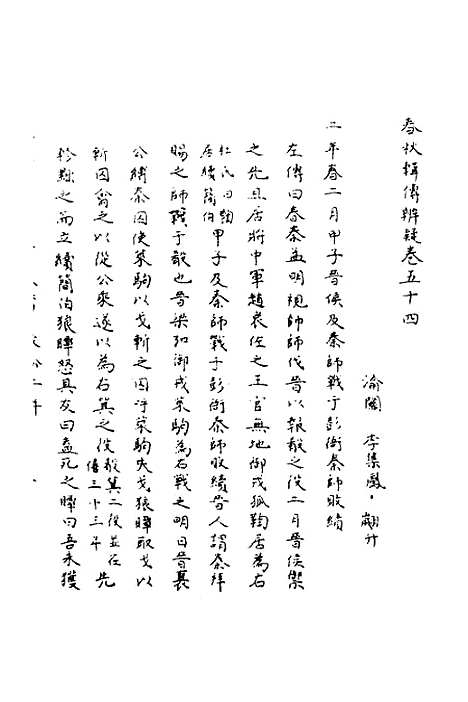 春秋輯傳辨疑卷五十四
渝關 李集鳳 翽升
二年春二月甲子晉侯及秦師戰于彭衙秦師敗績
左傳曰春秦孟明視帥師伐晉以報殽之役二月晉侯禦
之先且居將中軍趙衰佐之王官無地御戎狐鞫居為右
杜氏曰鞫居續簡伯甲子及秦師戰于彭衙秦師敗績晉人謂秦拜
賜之師戰于殽也晉梁弘御戎萊駒為右戰之明日晉襄
公縛秦囚使萊駒以戈斬之囚呼萊駒失戈狼瞫取戈以
斬囚禽之以從公乘遂以為右箕之役殽箕二役並在僖三十三年先
軫黜之而立續簡伯狼瞫怒其友曰盍死之瞫曰吾未獲